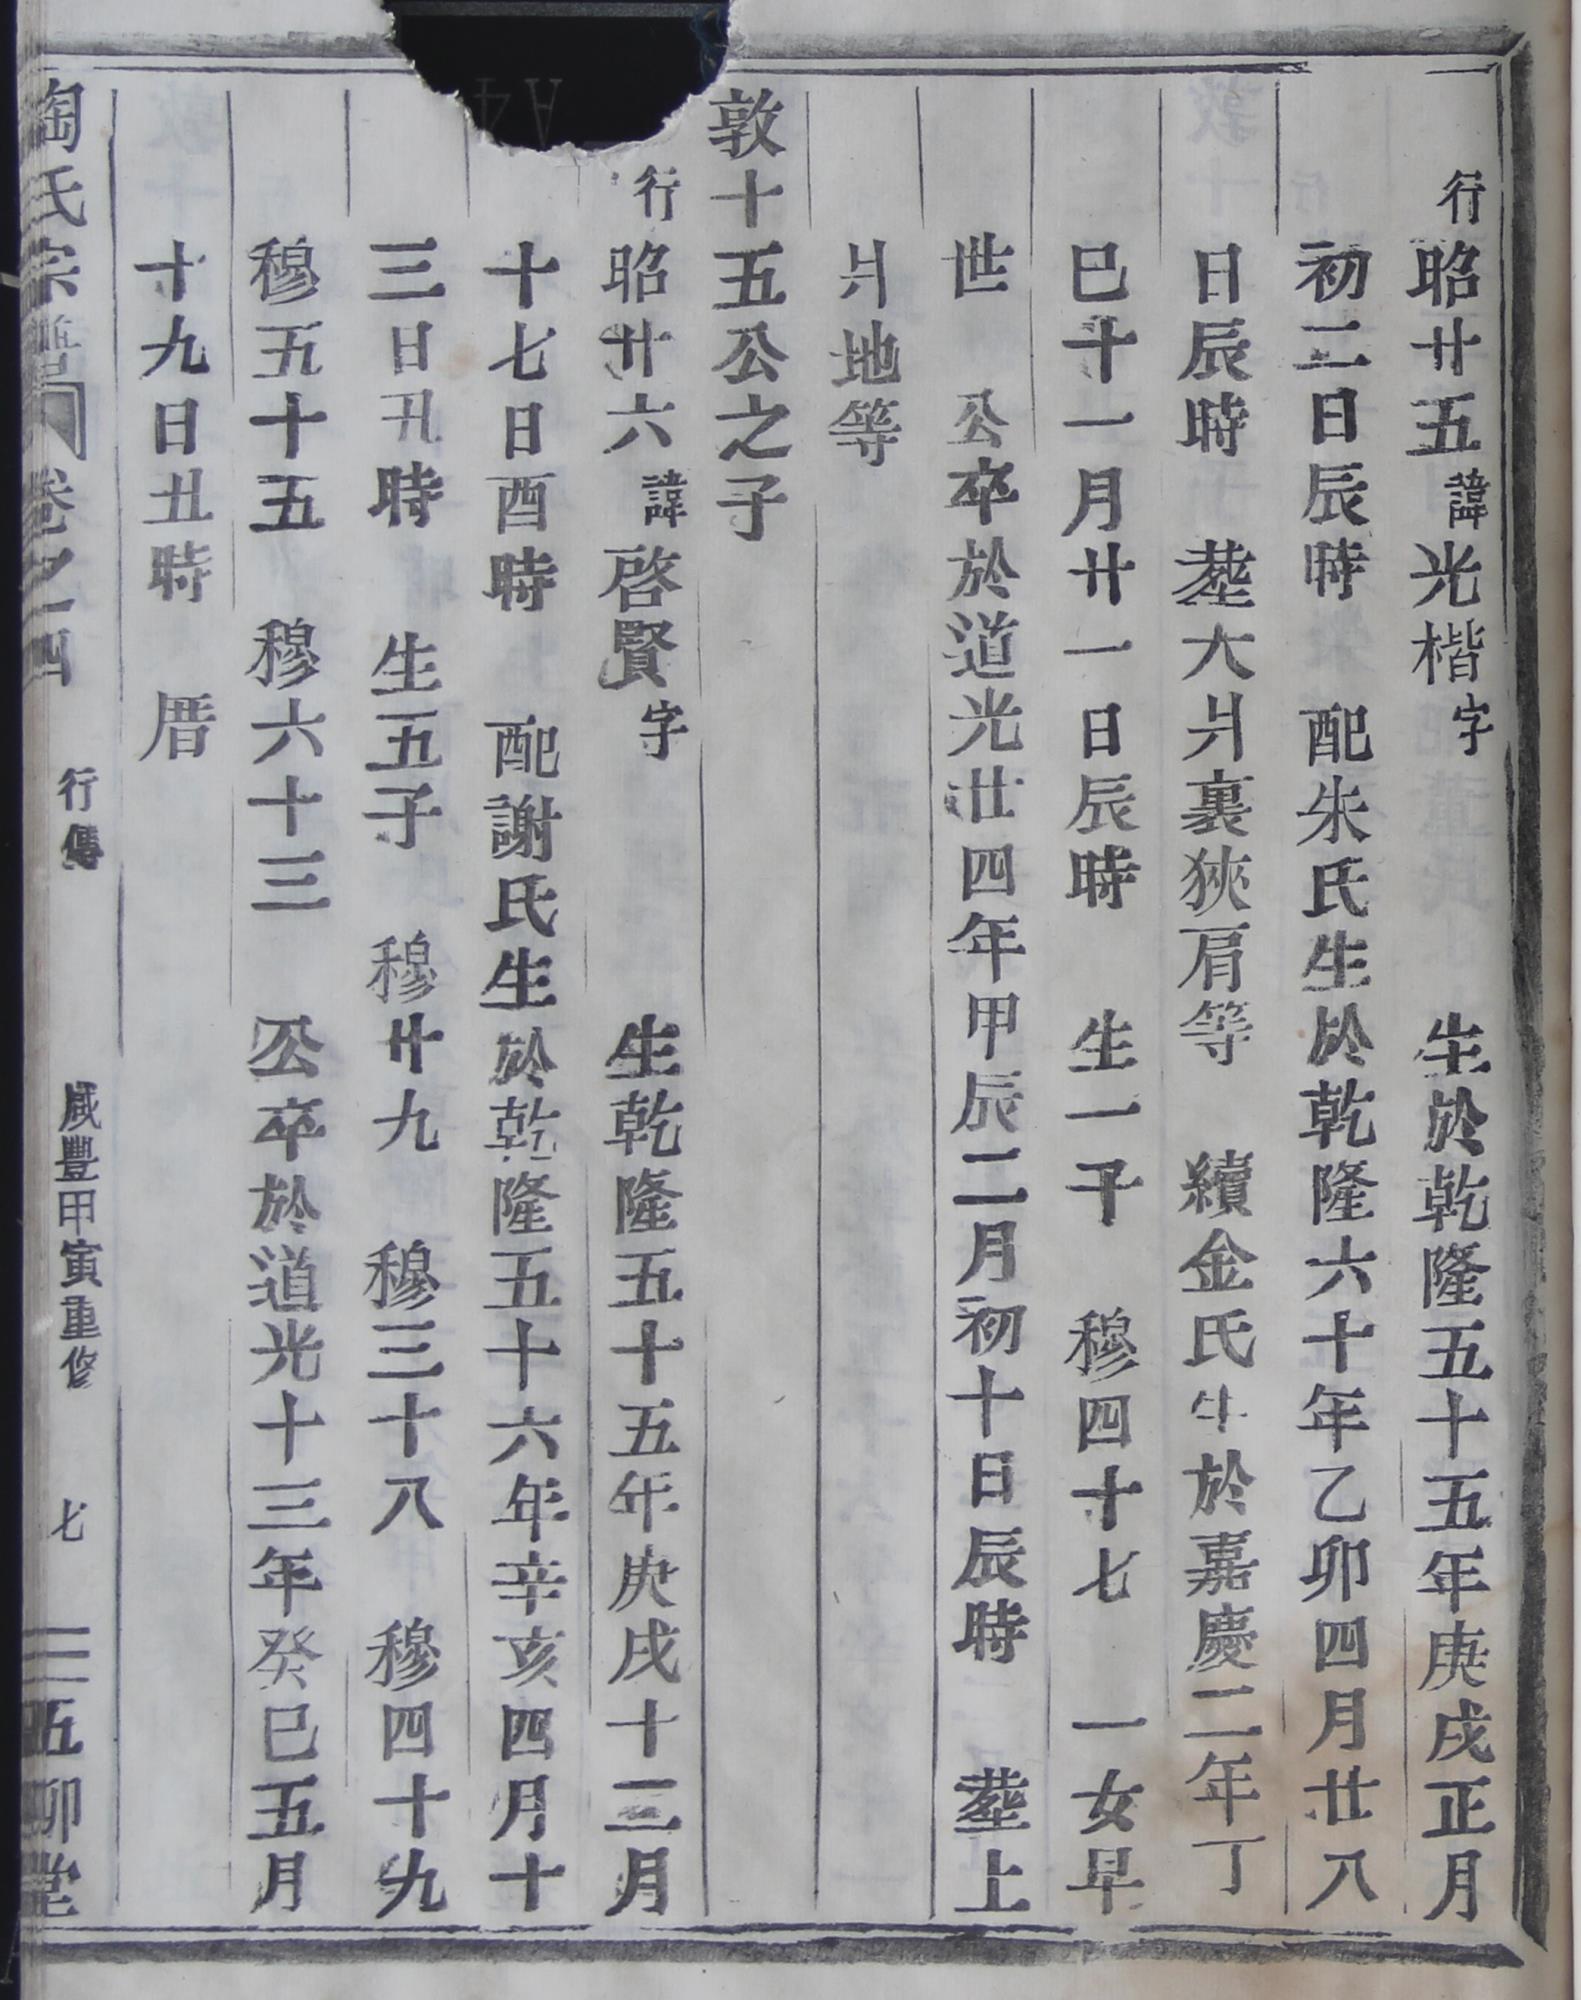 行昭廿五諱光楷字 生於乾隆五十五年庚戌正月
初二日辰時 配朱氏生於乾隆六十年乙卯四月廿八
日辰時 塟大爿裏狹肩等 續金氏生於嘉慶二年丁
巳十一月廿一日辰時 生一子 穆四十七 一女早
世 公卒於道光廿四年甲辰二月初十日辰時 塟上
爿地等
敦十五公之子
行昭廿六諱啓賢字 生乾隆五十五年庚戌十二月
十七日酉時 配謝氏生於乾隆五十六年辛亥四月十
三日丑時 生五子 穆廿九 穆三十八 穆四十九
穆五十五 穆六十三 公卒於道光十三年癸巳五月
十九日丑時 厝
陶氏宗譜 卷之四 行傳 咸豐甲寅重修 七 五柳堂